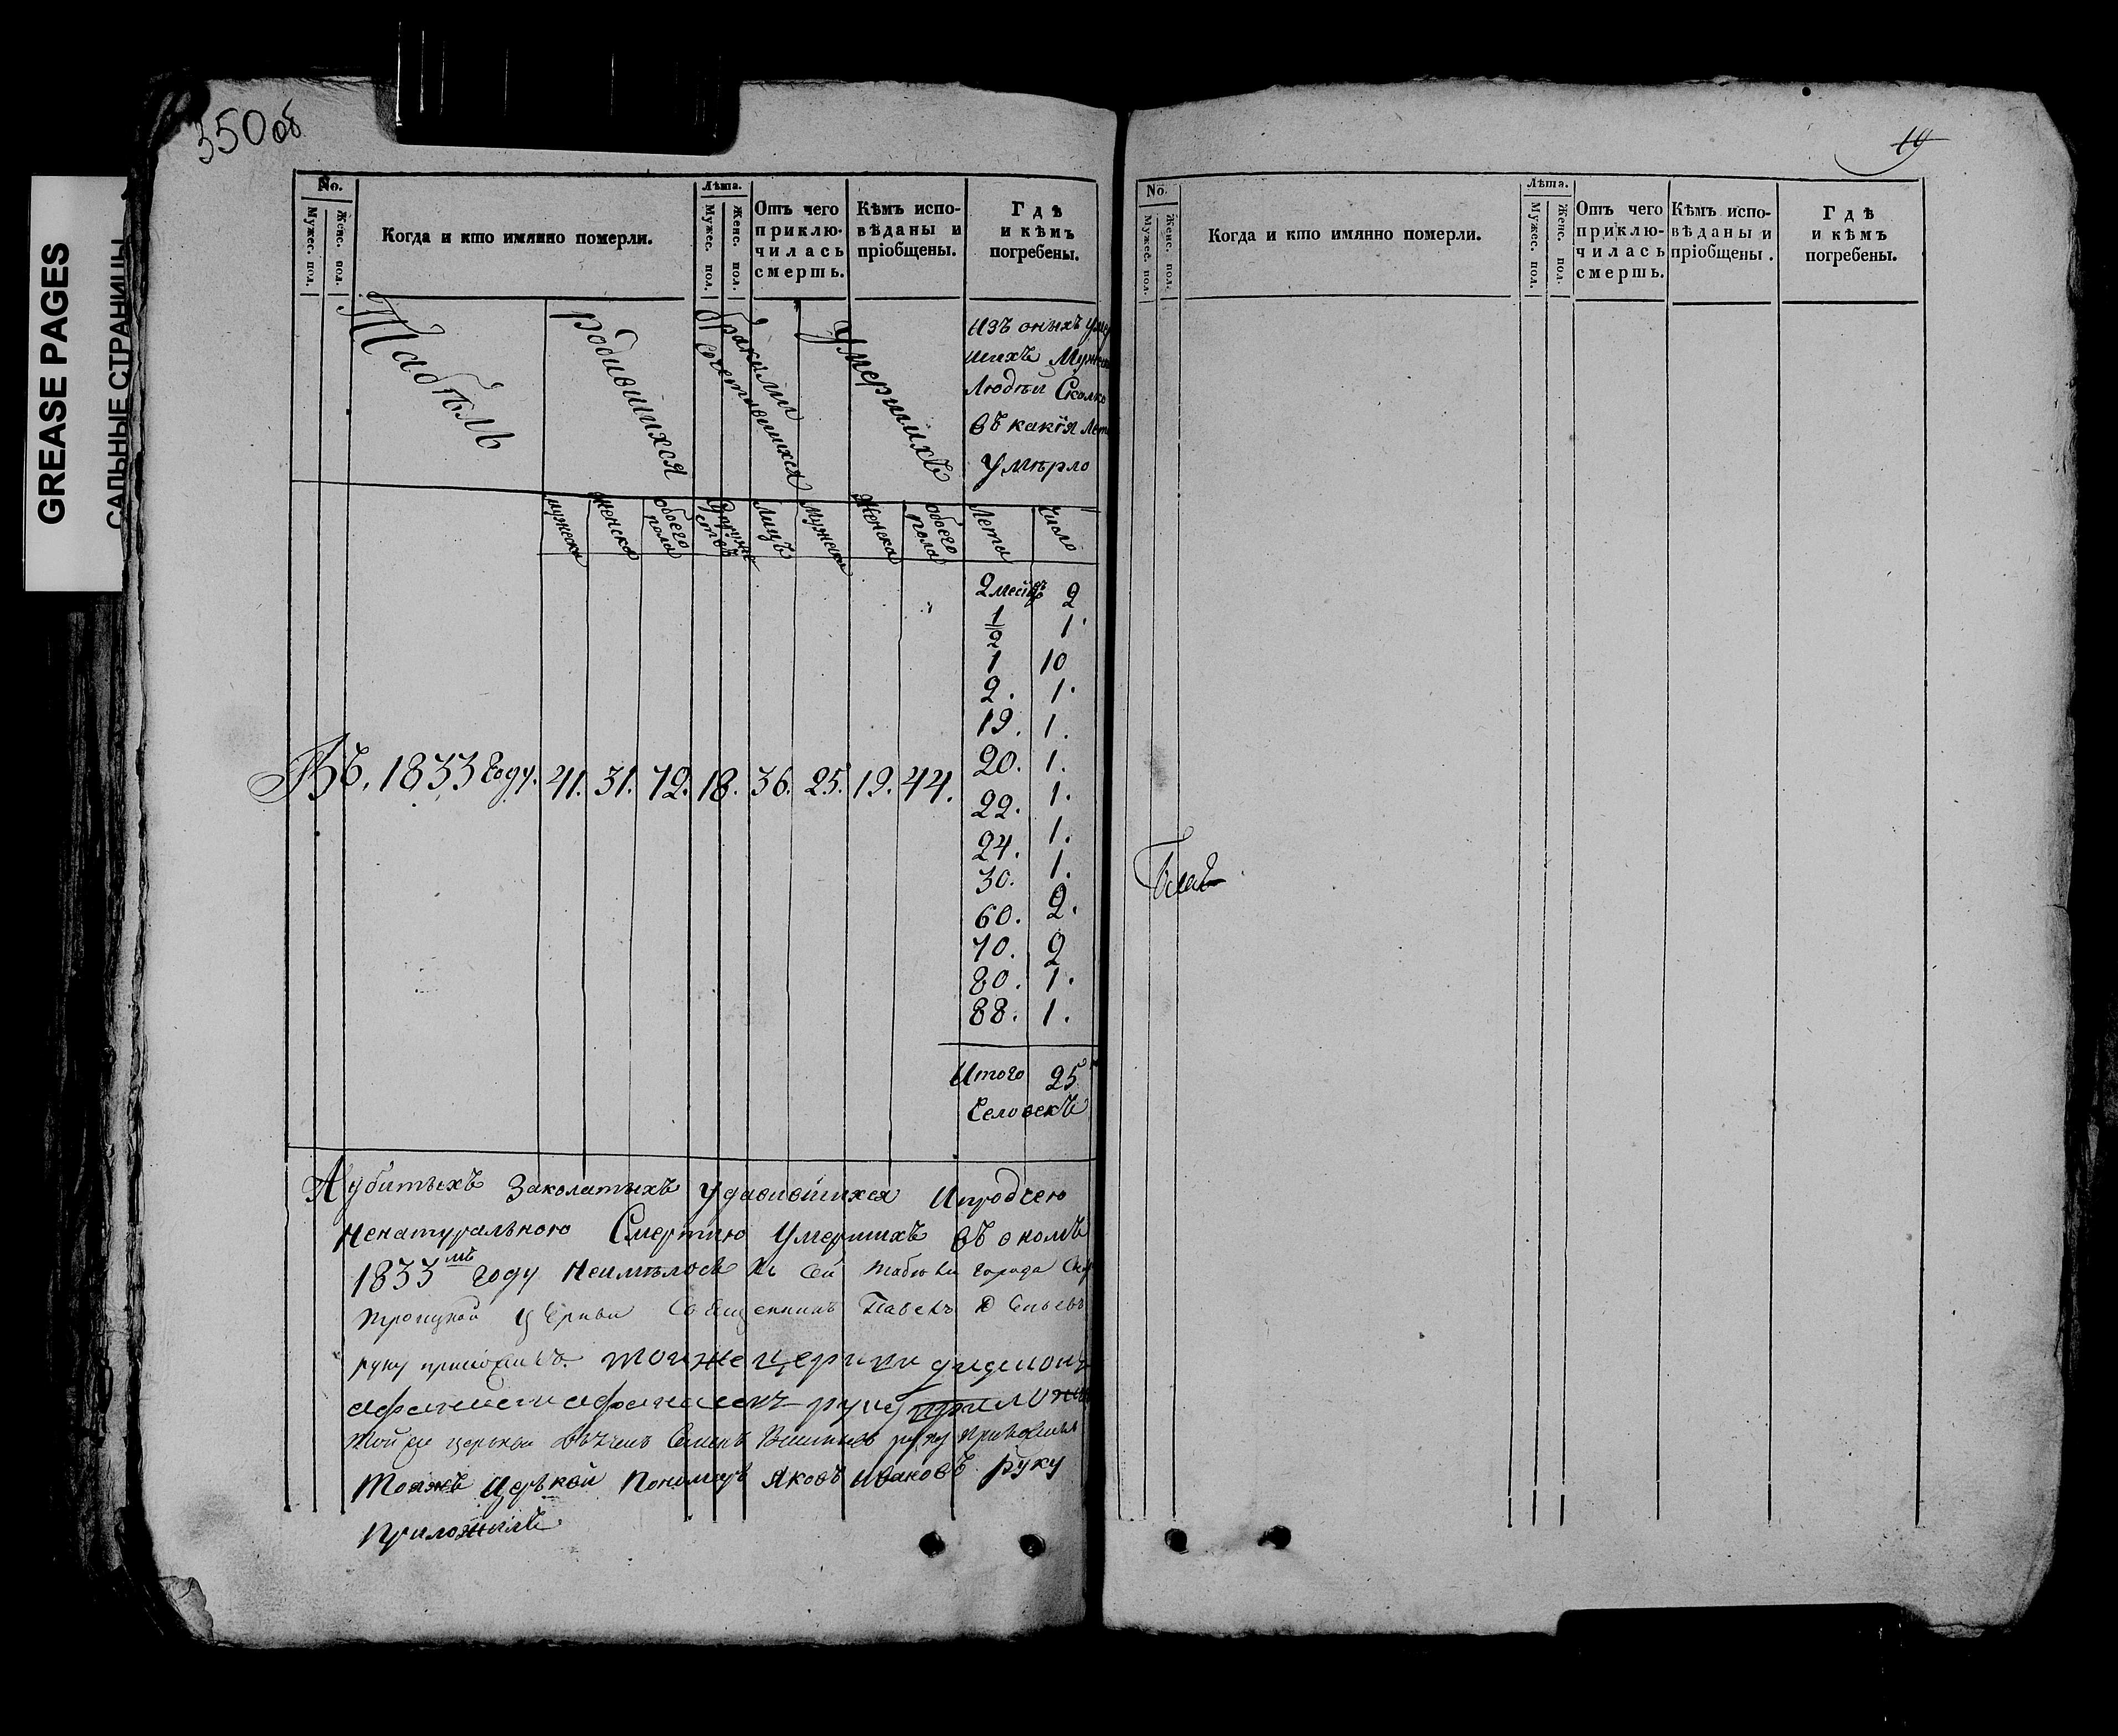 GREASE PAGES
САЛЬНЫЕ СТРАНИЦЫ
350об
No.
Мужес. пол.
Женс. пол.
Когда и кто имянно померли.
Лѣта.
Мужес. пол.
Женс. пол.
Отъ чего
приклю-
чилась
смерть.
Кѣмъ испо-
вѣданы и
пріобщены.
Гдѣ
и кѣмъ
погребены.
Табѣль
родившихся
браками
сочетавшихся
Умершихъ
Изъ оныхъ умер
шихъ Мужеска
Людѣй Сколко
въ какія Лета
Умѣрло
мужеска
женска
обоего
пола
Супруже
ствъ
Лицъ
Мужеска
Женска
обоего
пола
Лета
Число
2 месяцъ 2
1/2 1.
1 10
2. 1.
19. 1.
20. 1.
22. 1.
24. 1.
30. 1.
60. 2.
70. 2
80. 1.
88. 1.
Въ, 1833 Году. 41. 31. 72. 18. 36. 25. 19. 44.
Итого 25
Человекъ
А убитыхъ Заколатыхъ Удавившихся И продчею
Ненатуральною Смертию Умершихъ въ ономъ
1833мъ году Неимѣлось Къ Сей табели города
троицкой Церкви Священникъ Павелъ
руку приложилъ. тойже церкви
руку приложи
той же церкви Семенъ руку приложилъ
Тояжъ Церквй Пономарь Яковъ Ивановъ Руку
Приложилъ
19
No.
Мужес. пол.
Женс. пол.
Когда и кто имянно померли.
Лѣта.
Мужес. пол.
Женс. пол.
Отъ чего
приклю-
чилась
смерть.
Кѣмъ испо-
вѣданы и
пріобщены.
Гдѣ
и кѣмъ
погребены.